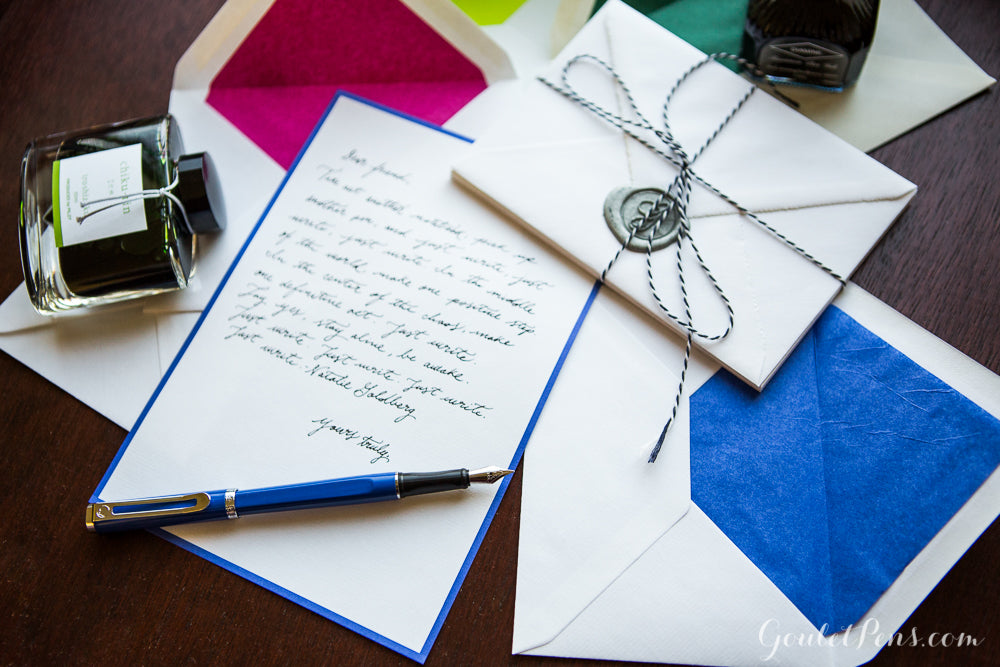 chiku-rin
Dear friend,
Take out another notebook, pick up
another pen, and just write, just
write, just write. In the middle
of the world, make one positive step.
In the center of the chaos, make
one definitive act. Just write.
Say yes, stay alive, be awake.
Just write. Just write. Just write.
Just write. - Natalie Goldberg
Yours truly,
GouletPens.com